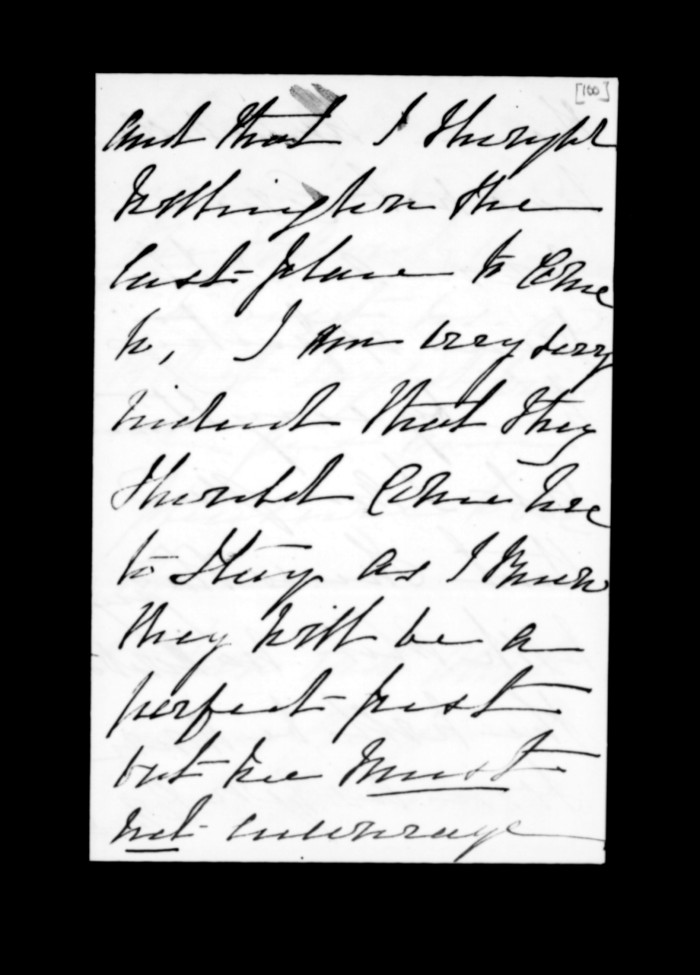 [100]
and that I thought
Nottington the
last place to come
to, I am very sorry
indeed that they
should come here
to stay as I know
they will be a
perfect pest
but we must
not encourage